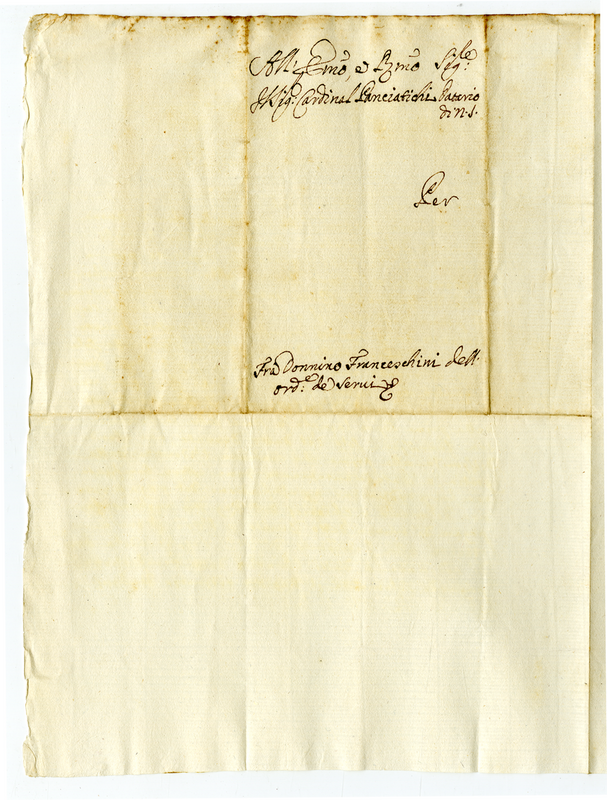 All: Emo, e Rmo Sigle:
Il Sig: Cardinal Panciatichi Datario
di N. S.
Per
Fra Donnino Franceschini dell.
ord.e de Servi